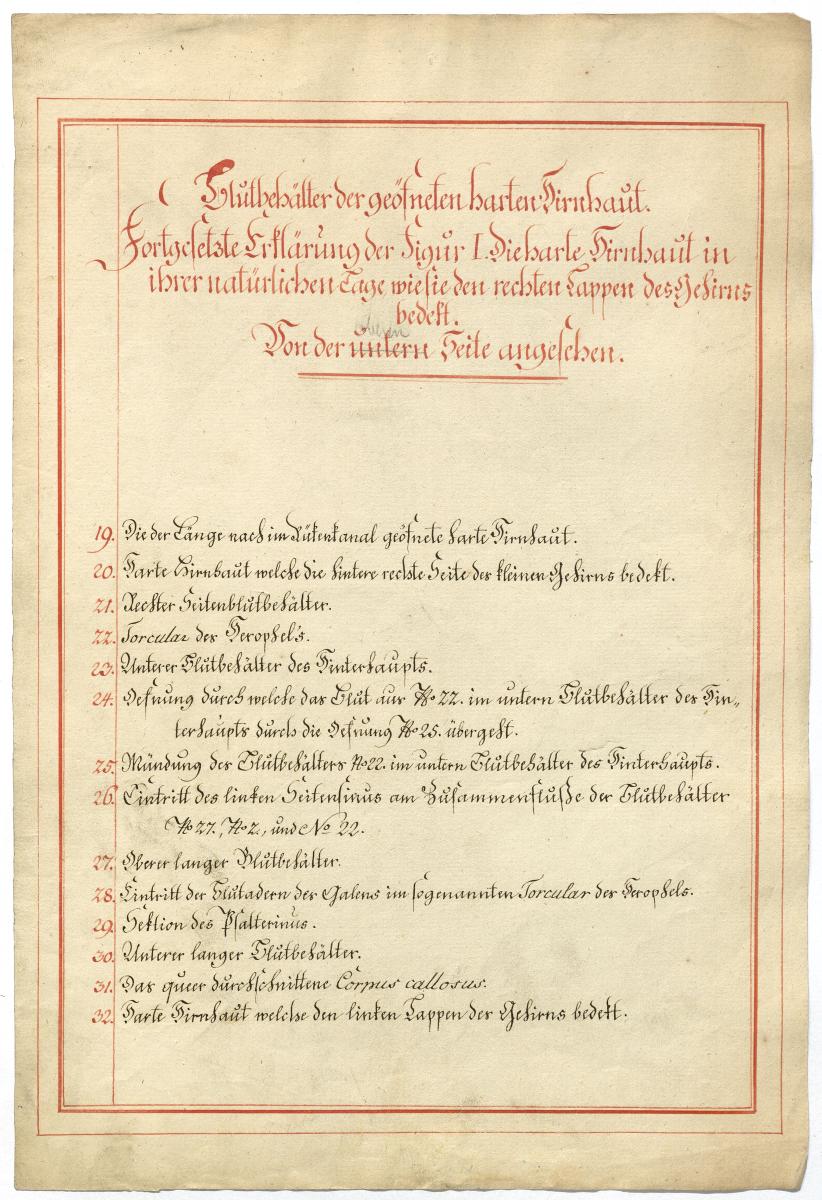 Bluthehälter der geöfneten harten Hirnhaut.
Fortgesetzte Erklärung der Figur I. Die harte Hirnhaut in
ihrer natürlichen Lage wie sie den rechten Lappen des Gehirns
bedekt.
obern
Von der untern Seite angesehen.
19. Die der Länge nach im Rükenkanal geöfnete harte Hirnhaut.
20. Harte Hirnhaut welche die hintere rechte Seite des kleinen Gehirns bedekt.
21. Rechter Seitenblutbehälter.
22. Torcular des Herophel's.
23. Unterer Blutbehälter des Hinterhaupts.
24. Oefnung durch welche das Blut aus No 22. im untern Blutbehälter des Hin„
terhaupts durch die Oefnung No 25. übergeht.
25. Mündung des Blutbehälters No 22. im untern Blutbehälter des Hinterhaupts.
26. Eintritt des linken Seitensinus am Zusammenfluße der Blutbehälter
No 27., No 2., und No 22.
27. Oberer langer Blutbehälter.
28. Eintritt der Blutadern des Galens im sogenannten Torcular des Herophels.
29. Sektion des Psalterinus.
30. Unterer langer Blutbehälter.
31. Das queer durchschnittene Corpus callosus.
32. Harte Hirnhaut welche den linken Lappen des Gehirns bedekt.